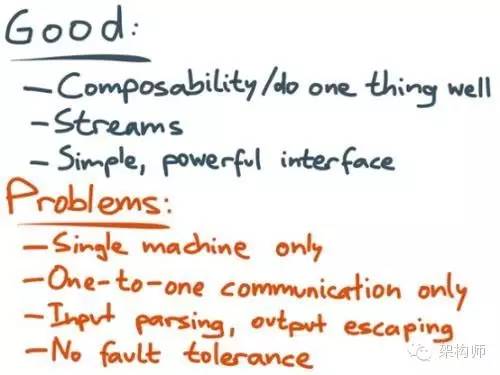 Good:
- Composability/do one thing well
- Streams
- Simple, powerful interface
Problems:
- Single machine only
- One-to-one communication only
- Input parsing, output escaping
- No fault tolerance
架构师